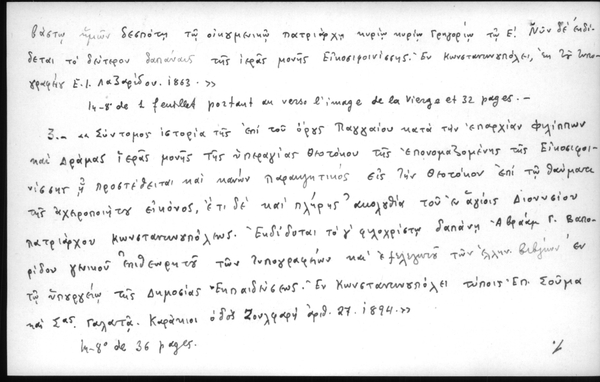 βάστῳ ἡμῶν δεσπότῃ τῷ οἰκουμενικῷ πατριάρχῃ κυρίῳ κυρίῳ Γρηγορίῳ τῷ Ε! Νῦν δὲ ἐκδί-
δεται τὸ δεύτερον δαπάναις τῆς ἱερᾶς μονῆς Εἰκοσιφοινίσσης. Ἐν Κωνσταντινουπόλει, ἐκ τῆς τυπο-
γραφίας Ε.Ι. Λαζαρίδου. 1863. »
In-8° de 1 feuillet portant au verso l'image de la Vierge et 32 pages. —
3.— « Σύντομος ἱστορία τῆς ἐπὶ τοῦ ὄρους Παγγαίου κατὰ τὴν ἐπαρχίαν Φιλίππων
καὶ Δράμας ἱερᾶς μονῆς τῆς ὑπεραγίας Θεοτόκου τῆς ἐπονομαζομένης τῆς Εἰκοσιφοι-
νίσσης ᾗ προστέθειται καὶ κανὼν παρακλητικὸς εἰς τὴν Θεοτόκον ἐπὶ τῷ θαύματι
τῆς ἀχειροποιήτου εἰκόνος, ἔτι δὲ καὶ πλήρης ἀκολουθία τοῦ ἐν ἁγίοις Διονυσίου
πατριάρχου Κωνσταντινουπόλεως. Ἐκδίδοται τὸ γ! φιλοχρίστῳ δαπάνῃ Ἀβραὰμ Γ. Βαπο-
ρίδου γενικοῦ ἐπιθεωρητοῦ τῶν τυπογραφείων καὶ ἐξελεγκτοῦ τῶν ἑλλην. βιβλίων ἐν
τῷ ὑπουργείῳ τῆς Δημοσίας Ἐκπαιδεύσεως. Ἐν Κωνσταντινουπόλει τύποις Ἐπ. Σούμα
καὶ Σας. Γαλατᾷ. Καράκιοι ὁδὸς Ζουλφαρῆ ἀριθ. 27. 1894. »
In-8° de 36 pages.